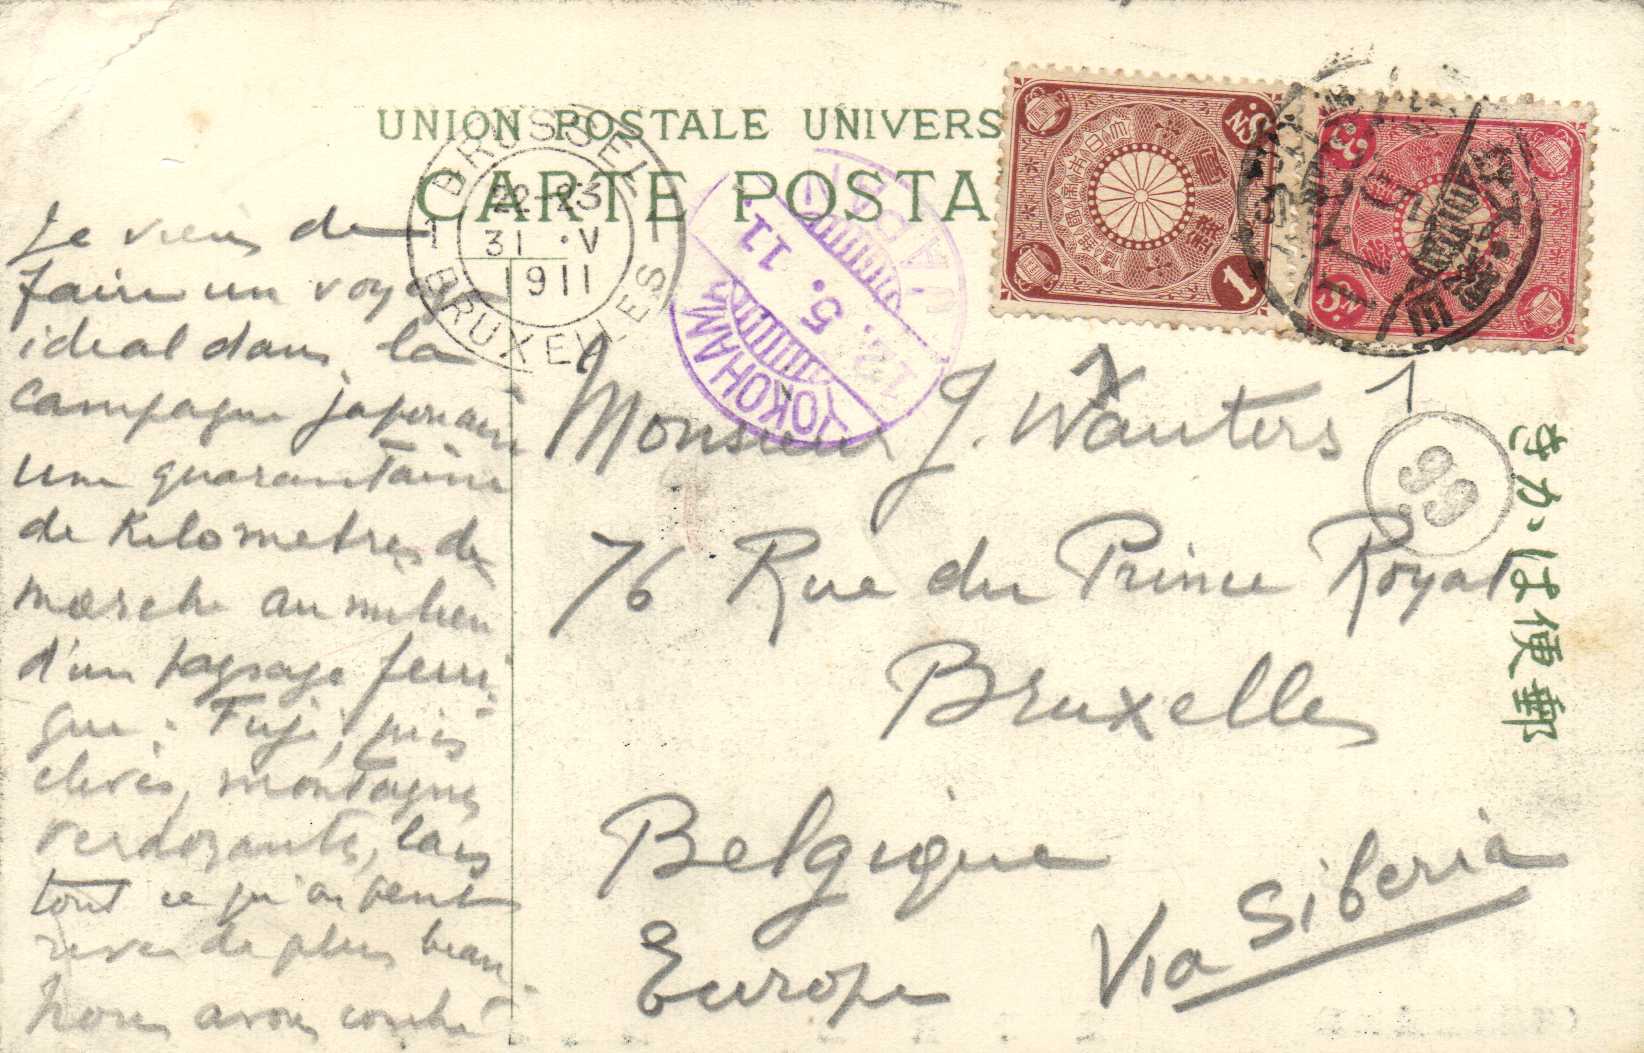 UNION POSTALE UNIVERS
CARTE POSTA
BRUSSEL
22-23
31 · V
1911
BRUXELLES
YOKOHAMA
12. 5. 11.
JAPAN
1 Sɴ.
3 Sɴ.
99
きかは便郵
Je viens de
faire un voyage
idéal dans la
campagne japonaise
une quarantaine
de Kilometres de
marche au milieu
d'un paysage feeri-
que. Fuji, pics
élevés, montagnes
verdoyantes, lacs
tout ce qu'on peut
rever de plus beau
Nous avons couché
Monsieur J. Wauters
76 Rue du Prince Royal
Bruxelles
Belgique
Europe
Via Siberia